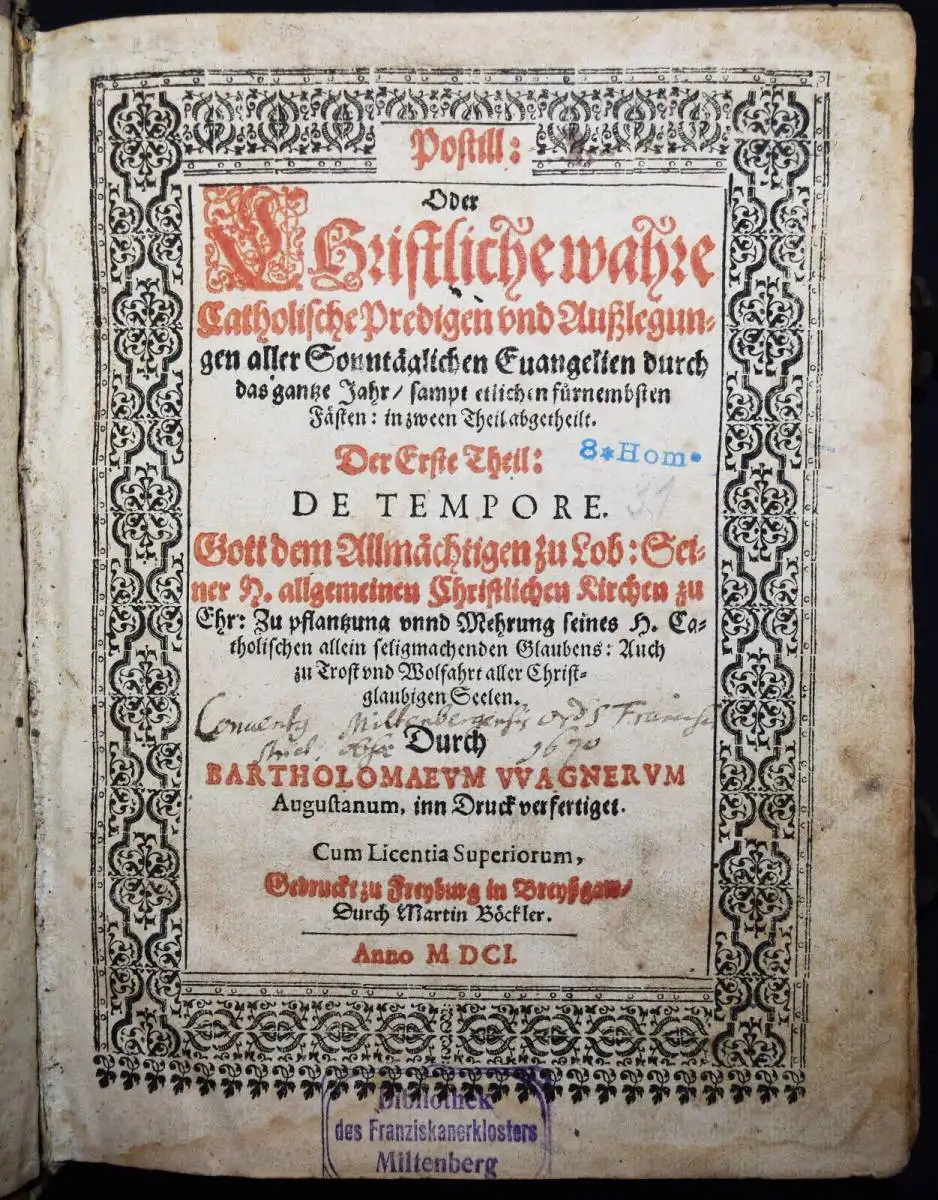 Postill:
Oder
CHristliche wahre
Catholische Predigen vnd Außlegun-
gen aller Sonntäglichen Euangelien durch
das gantze Jahr/ sampt etlichen fürnembsten
Fästen: in zween Theil abgetheilt.
8*Hom.
Der Erste Theil:
31
DE TEMPORE.
Gott dem Allmächtigen zu Lob: Sei-
ner H. allgemeinen Christlichen Kirchen zu
Ehr: Zu pflantzung vnnd Mehrung seines H. Ca-
tholischen allein seligmachenden Glaubens: Auch
zu Trost vnd Wolfahrt aller Christ-
glaubigen Seelen.
Conventus Miltenbergensis ord. S Francisci
1670
Durch
BARTHOLOMAEVM VVAGNERVM
Augustanum, inn Druck verfertiget.
Cum Licentia Superiorum,
Gedruckt zu Freyburg in Breyßgaw/
Durch Martin Böckler.
Anno M DCI.
Bibliothek
des Franziskanerklosters
Miltenberg